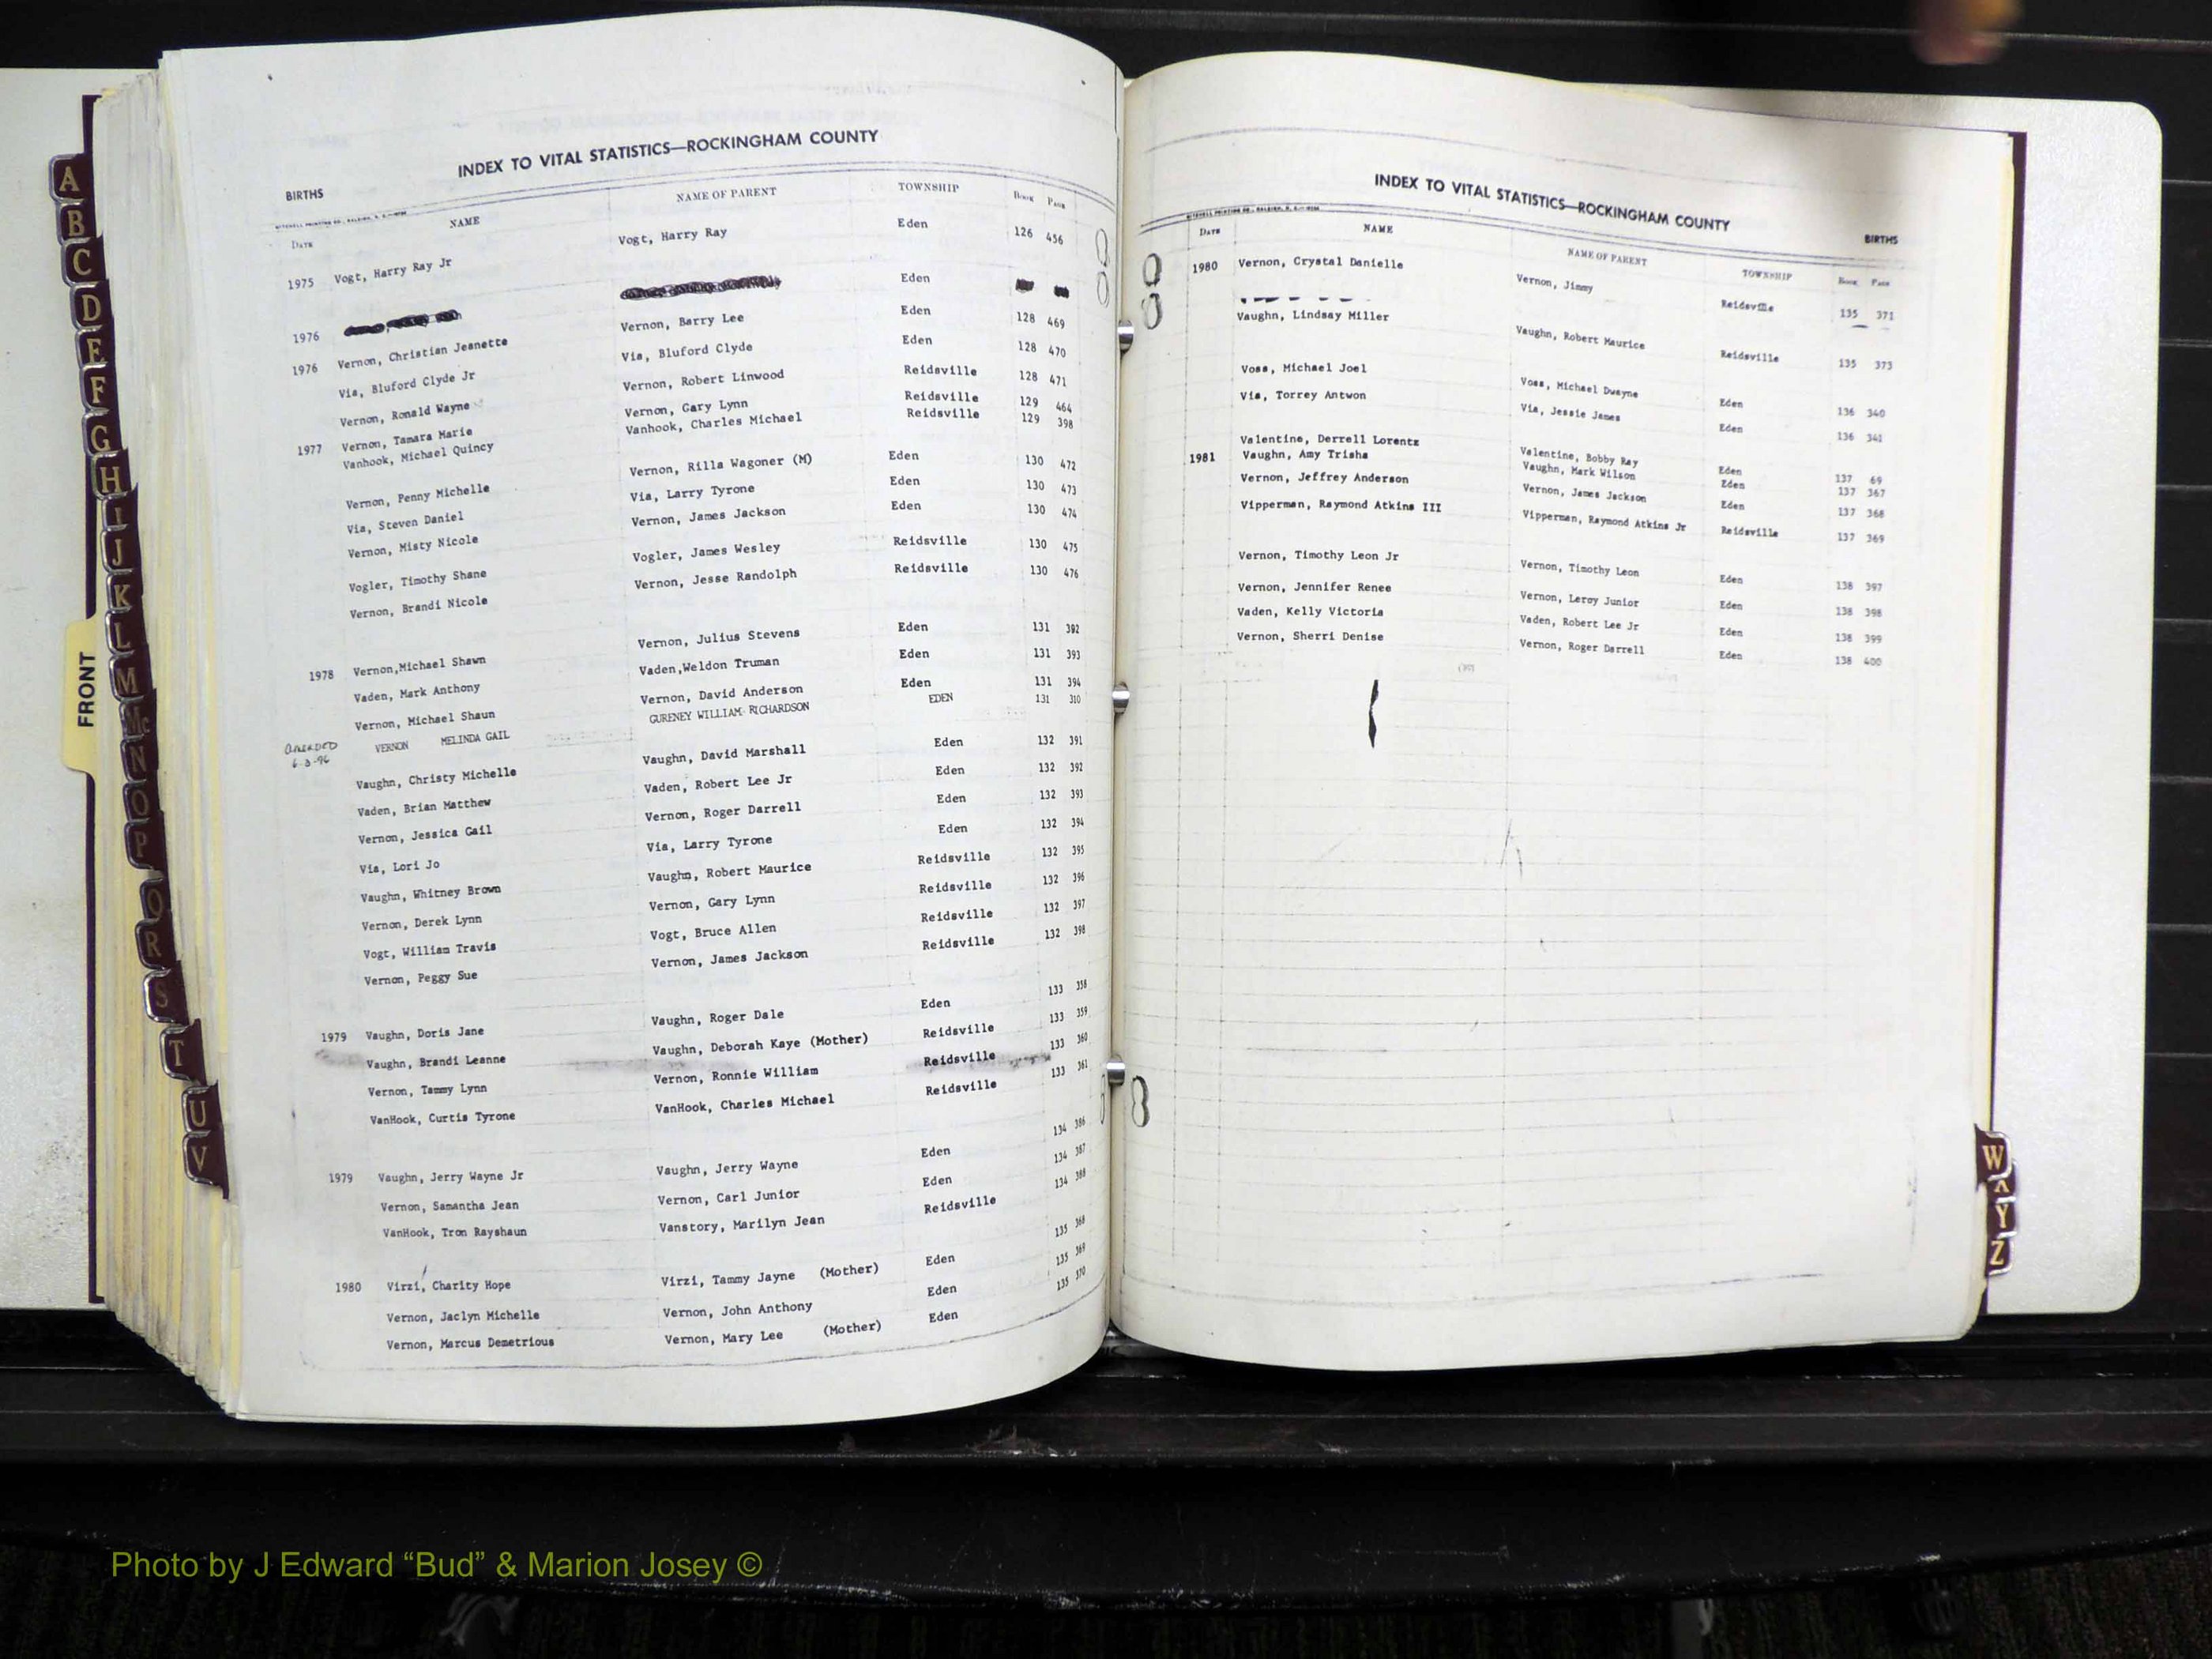 INDEX TO VITAL STATISTICS—ROCKINGHAM COUNTY
BIRTHS
DATE NAME NAME OF PARENT TOWNSHIP BOOK PAGE
1975 Vogt, Harry Ray Jr Vogt, Harry Ray Eden 126 456
1976 Eden
1976 Vernon, Christian Jeanette Vernon, Barry Lee Eden 128 469
Via, Bluford Clyde Jr Via, Bluford Clyde Eden 128 470
Vernon, Ronald Wayne Vernon, Robert Linwood Reidsville 128 471
1977 Vernon, Tamara Marie Vernon, Gary Lynn Reidsville 129 464
Vanhook, Michael Quincy Vanhook, Charles Michael Reidsville 129 398
Vernon, Penny Michelle Vernon, Rilla Wagoner (M) Eden 130 472
Via, Steven Daniel Via, Larry Tyrone Eden 130 473
Vernon, Misty Nicole Vernon, James Jackson Eden 130 474
Vogler, Timothy Shane Vogler, James Wesley Reidsville 130 475
Vernon, Brandi Nicole Vernon, Jesse Randolph Reidsville 130 476
1978 Vernon,Michael Shawn Vernon, Julius Stevens Eden 131 392
Vaden, Mark Anthony Vaden,Weldon Truman Eden 131 393
Vernon, Michael Shaun Vernon, David Anderson Eden 131 394
amended VERNON MELINDA GAIL GURENEY WILLIAM RICHARDSON EDEN 131 310
Vaughn, Christy Michelle Vaughn, David Marshall Eden 132 391
Vaden, Brian Matthew Vaden, Robert Lee Jr Eden 132 392
Vernon, Jessica Gail Vernon, Roger Darrell Eden 132 393
Via, Lori Jo Via, Larry Tyrone Eden 132 394
Vaughn, Whitney Brown Vaughn, Robert Maurice Reidsville 132 395
Vernon, Derek Lynn Vernon, Gary Lynn Reidsville 132 396
Vogt, William Travis Vogt, Bruce Allen Reidsville 132 397
Vernon, Peggy Sue Vernon, James Jackson Reidsville 132 398
1979 Vaughn, Doris Jane Vaughn, Roger Dale Eden 133 358
Vaughn, Brandi Leanne Vaughn, Deborah Kaye (Mother) Reidsville 133 359
Vernon, Tammy Lynn Vernon, Ronnie William Reidsville 133 360
VanHook, Curtis Tyrone VanHook, Charles Michael Reidsville 133 361
1979 Vaughn, Jerry Wayne Jr Vaughn, Jerry Wayne Eden 134 386
Vernon, Samantha Jean Vernon, Carl Junior Eden 134 387
VanHook, Tron Rayshaun Vanstory, Marilyn Jean Reidsville 134 388
1980 Virzi, Charity Hope Virzi, Tammy Jayne (Mother) Eden 135 368
Vernon, Jaclyn Michelle Vernon, John Anthony Eden 135 369
Vernon, Marcus Demetrious Vernon, Mary Lee (Mother) Eden 135 370
INDEX TO VITAL STATISTICS—ROCKINGHAM COUNTY
BIRTHS
DATE NAME NAME OF PARENT TOWNSHIP BOOK PAGE
1980 Vernon, Crystal Danielle Vernon, Jimmy Reidsville 135 371
Vaughn, Lindsay Miller Vaughn, Robert Maurice Reidsville 135 373
Voss, Michael Joel Voss, Michael Dwayne Eden 136 340
Via, Torrey Antwon Via, Jessie James Eden 136 341
Valentine, Derrell Lorentz Valentine, Bobby Ray Eden 137 69
1981 Vaughn, Amy Trisha Vaughn, Mark Wilson Eden 137 367
Vernon, Jeffrey Anderson Vernon, James Jackson Eden 137 368
Vipperman, Raymond Atkins III Vipperman, Raymond Atkins Jr Reidsville 137 369
Vernon, Timothy Leon Jr Vernon, Timothy Leon Eden 138 397
Vernon, Jennifer Renee Vernon, Leroy Junior Eden 138 398
Vaden, Kelly Victoria Vaden, Robert Lee Jr Eden 138 399
Vernon, Sherri Denise Vernon, Roger Darrell Eden 138 400
A
B
C
D
E
F
G
H
I
J
K
L
M
Mc
N
O
P
Q
R
S
T
U
V
FRONT
W
Y
Z
Photo by J Edward “Bud” & Marion Josey ©